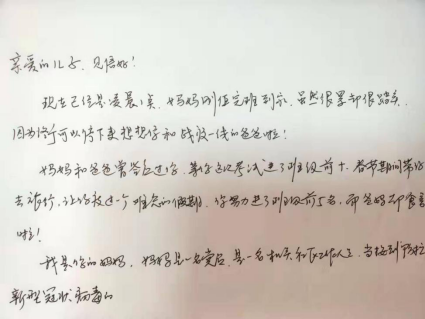 亲爱的儿子,见信好!
现在已经是凌晨1点,妈妈刚值完班到家,虽然很累却很踏实,
因为终于可以停下来想想你和战疫一线的爸爸啦!
妈妈和爸爸曾答应过你,等你这次考试进了班级前十,春节期间带你
去旅行,让你过一个难忘的假期,你努力进了班级前5名,而爸妈却食言
啦!
我是你的妈妈,妈妈是一名党员,是一名机关 工作人,当接到 防控
新型冠状病毒的